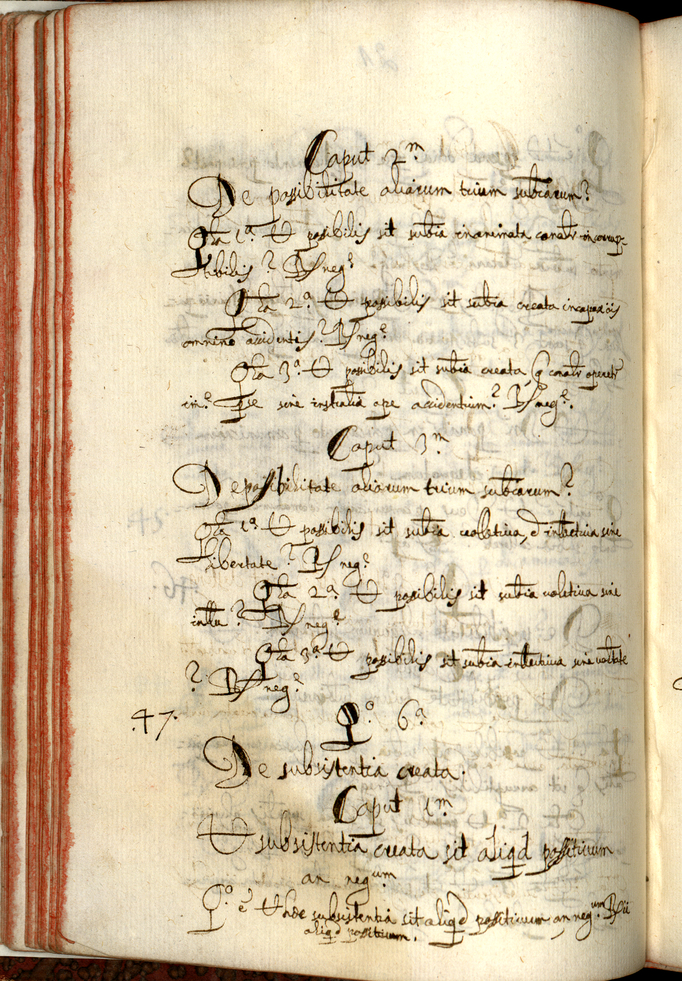 Caput 2.m
De possibilitate aliarum trium subtiarum?
Qta 1.a Ut possibilis sit subtia inanimata conatr incorrup-
tibilis? R/ neg.e
Qta 2.a Ut possibilis sit subtia creata incapax
omnino accidentis? R/ neg.e
Qta 3.a Ut possibilis sit subtia creata q conatr operetr
in.e per se sine instrtalia ope accidentium? R/ neg.e.
Caput 3.m
De possibilitate aliarum trium subtiarum?
Qta 1.a Ut possibilis sit subtia volitiva, et intlectiva sine
libertate? R/ neg.e
Qta 2.a Ut possibilis sit subtia volitiva sine
intltu? R/ neg.e
Qta 3.a Ut possibilis sit subtia intlectiva sine voltate
? R/ neg.e
.47. Q.o 6.a
De subsistentia creata.
Caput 1.m
Ut subsistentia creata sit aliqd possitivum
an neg.um
Q.o e Ut hae subsistentia sit aliqd possitivum an neg.um R/
aliqd possitivum.